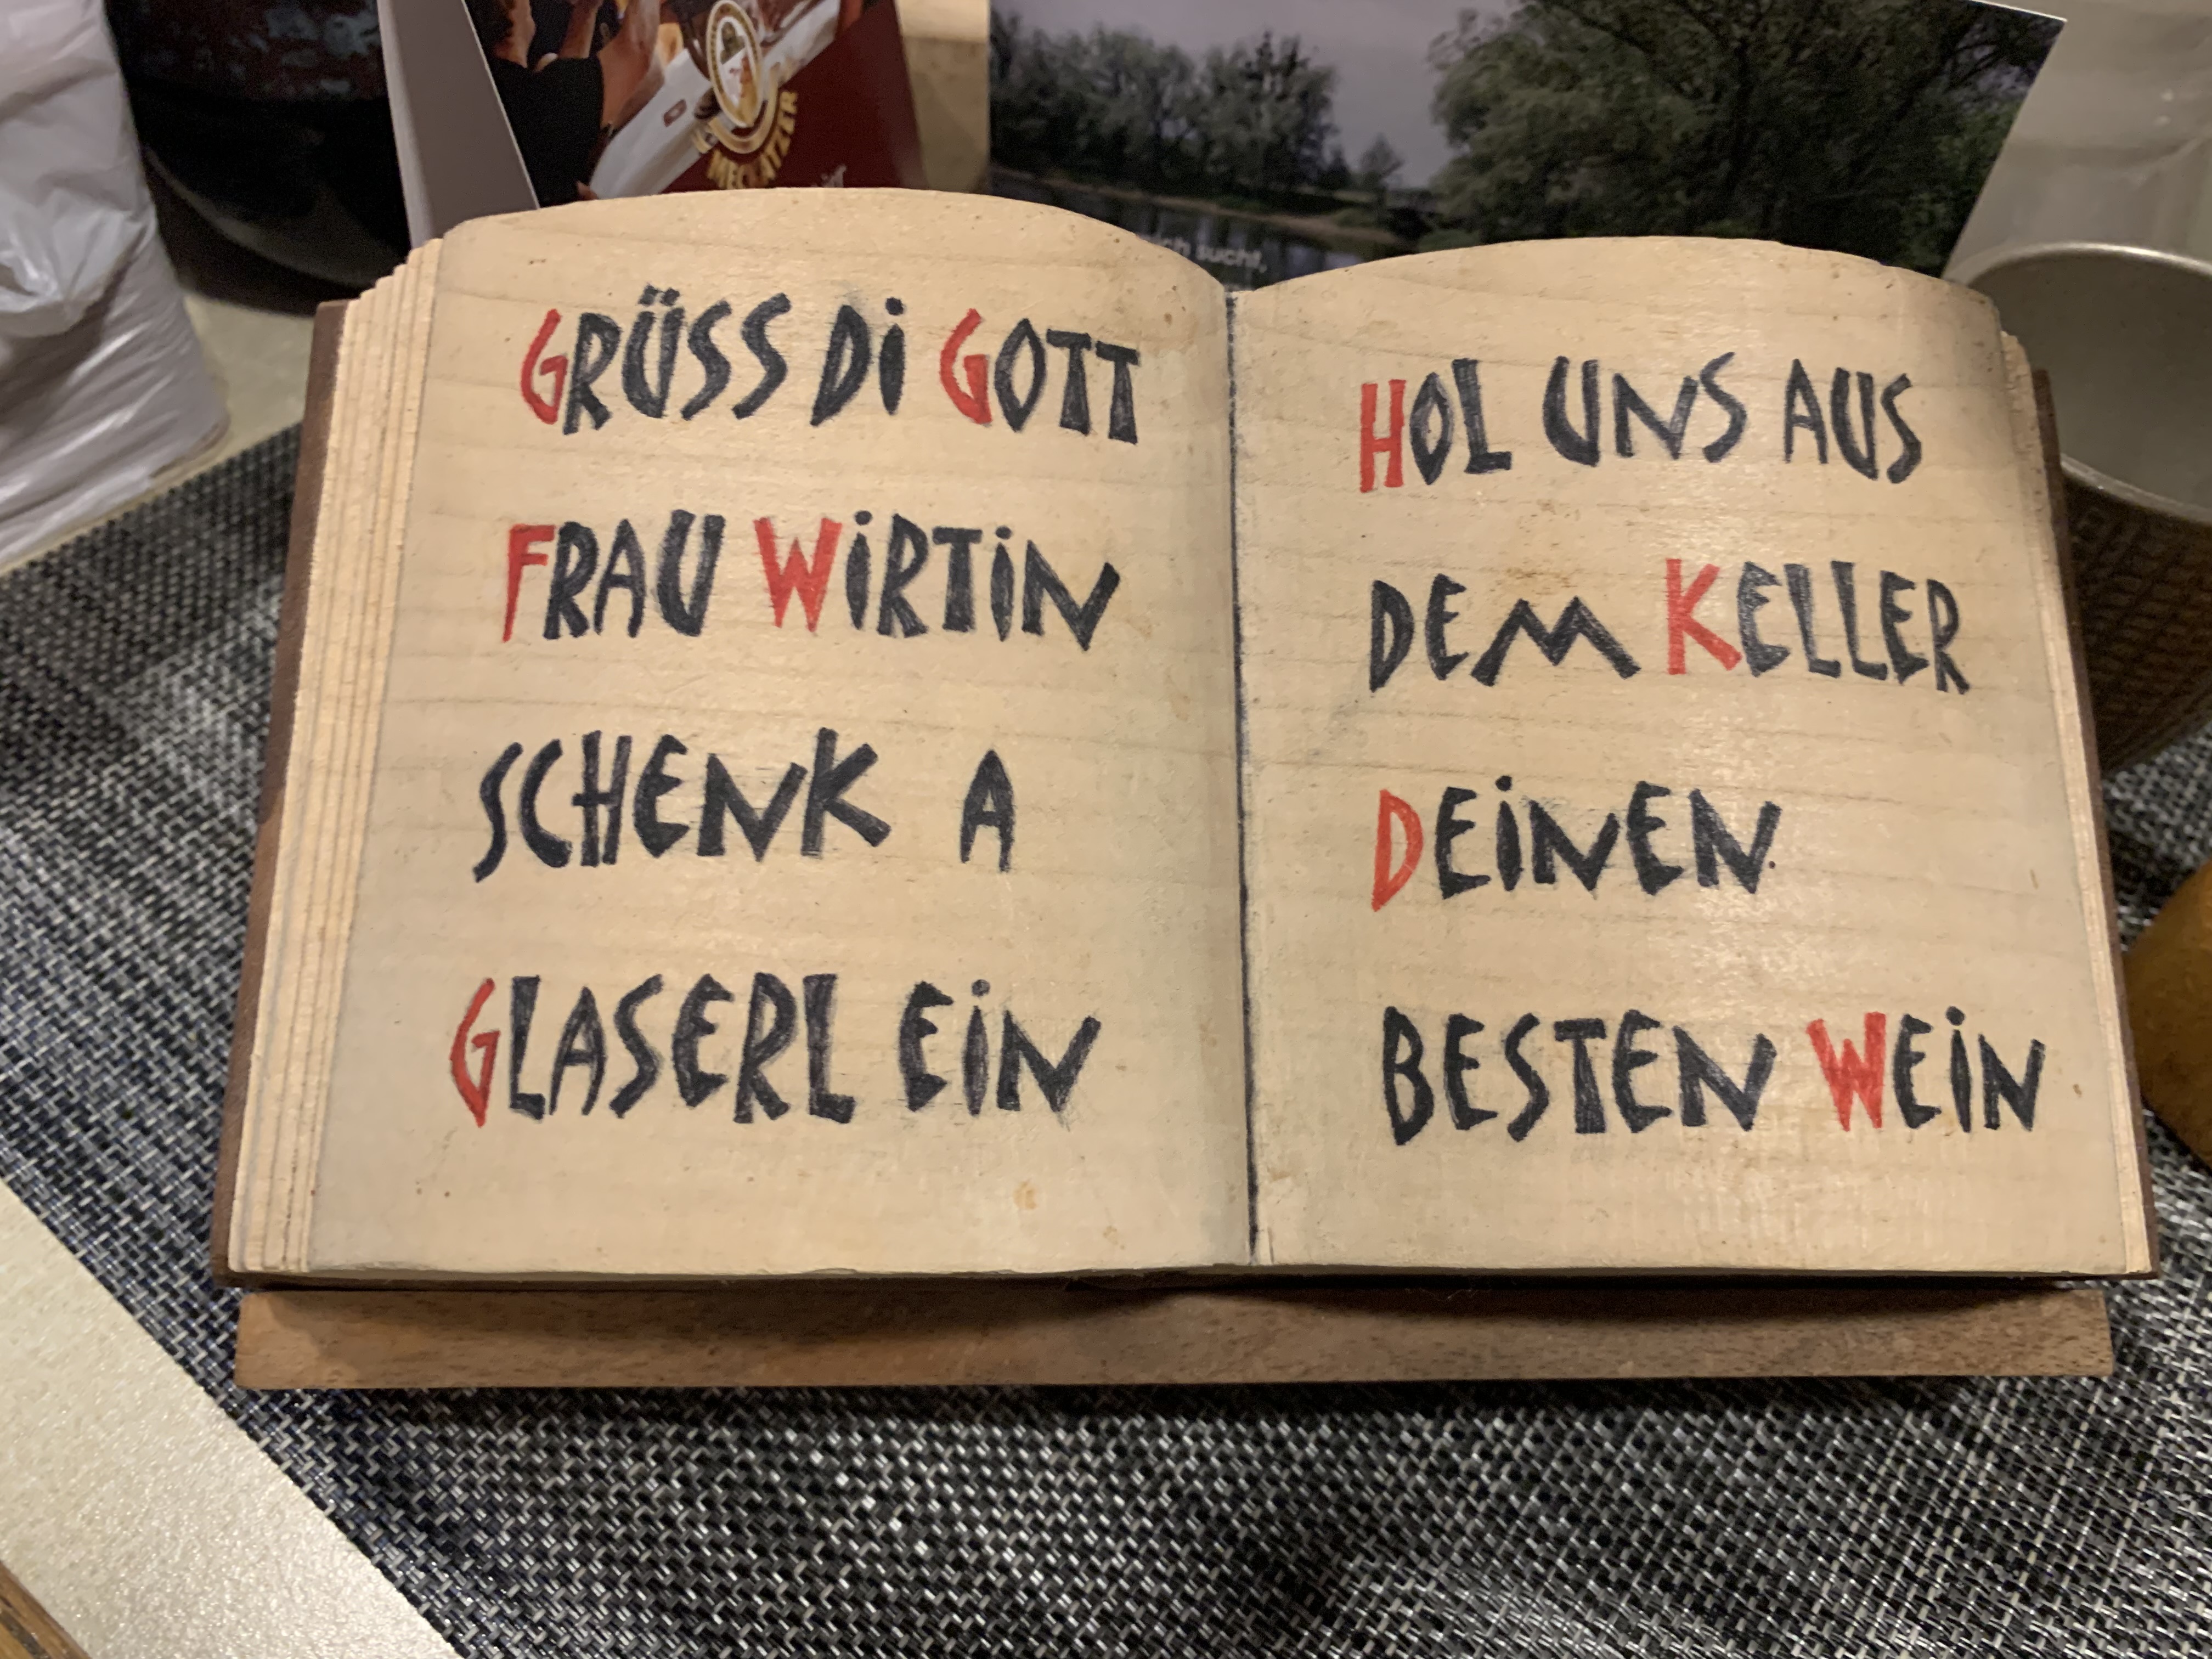 GRÜSS Di GOTT
FRAU WiRTiN
SCHENK A
GLASERL EiN
HOL UNS AUS
DEM KELLER
DEiNEN
BESTEN WEiN
sucht,